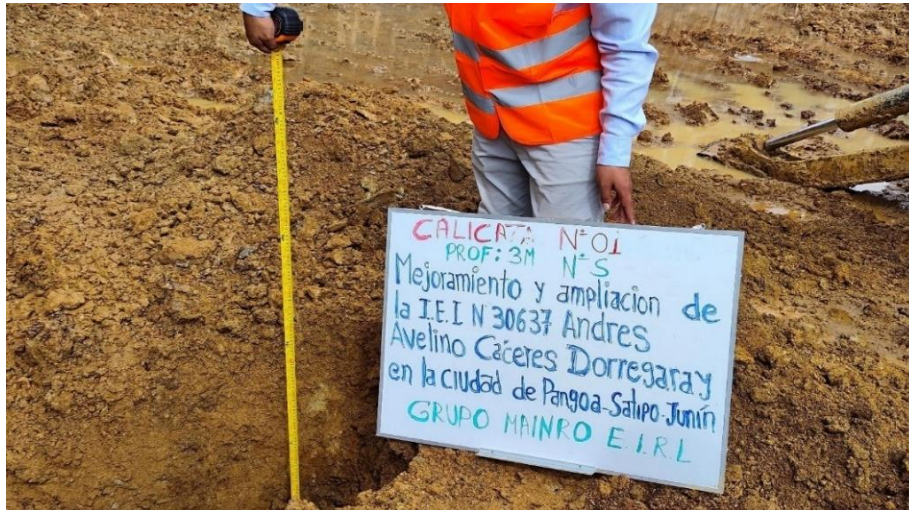 CALICATA N° 01
PROF: 3M N° S
Mejoramiento y ampliacion de
la I.E.I N 30637 Andres
Avelino Caceres Dorregaray
en la ciudad de Pangoa-Satipo-Junín
GRUPO MAINRO E.I.R.L